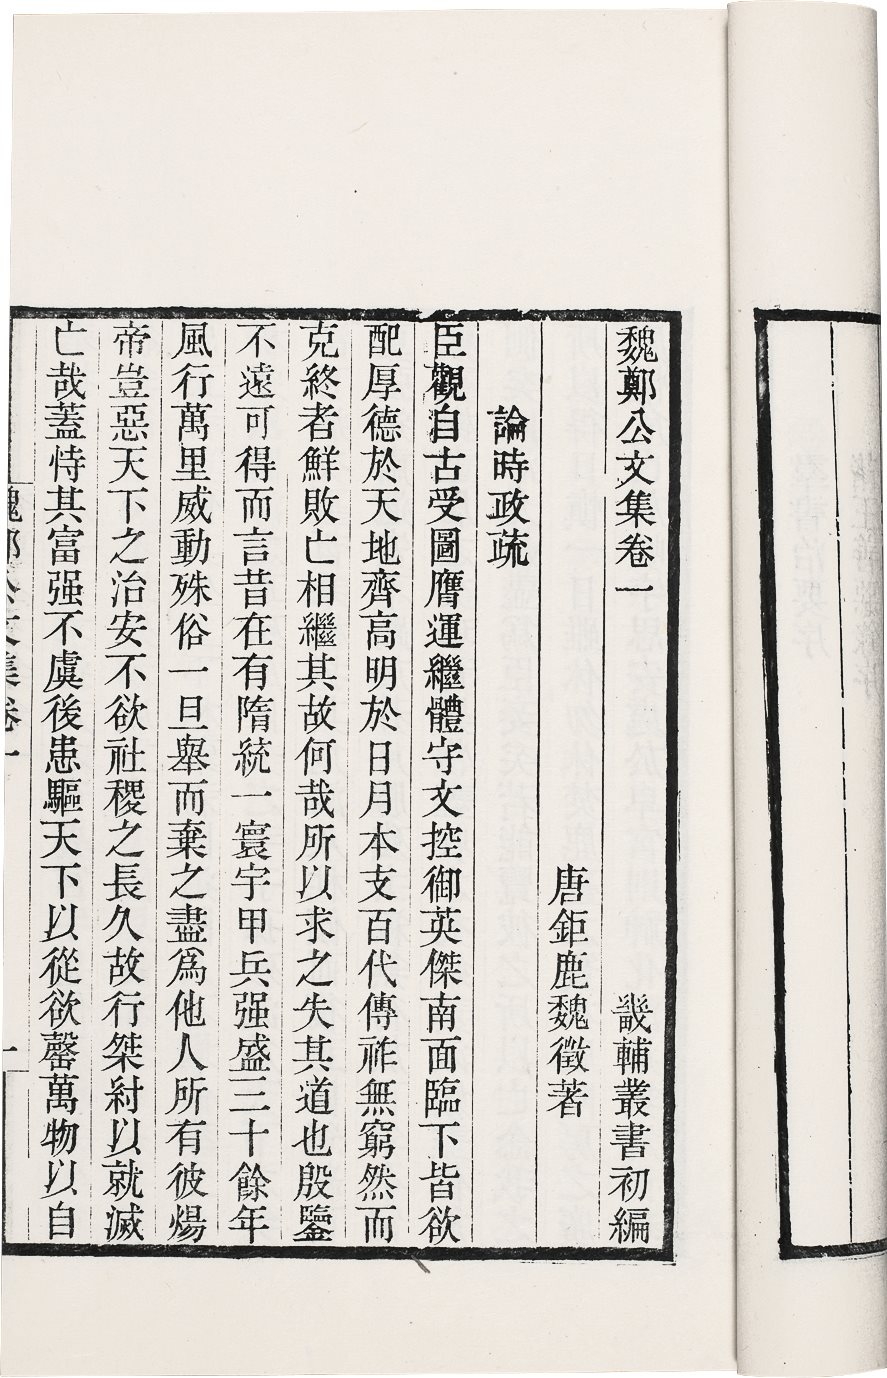 魏鄭公文集卷一
畿輔叢書初編
唐鉅鹿魏徵著
論時政疏
臣觀自古受圖膺運繼體守文控御英傑南面臨下皆欲
配厚德於天地齊高明於日月本支百代傳祚無窮然而
克終者鮮敗亡相繼其故何哉所以求之失其道也殷鑒
不遠可得而言昔在有隋統一寰宇甲兵强盛三十餘年
風行萬里威動殊俗一旦舉而棄之盡爲他人所有彼煬
帝豈惡天下之治安不欲社稷之長久故行桀紂以就滅
亡哉蓋恃其富强不虞後患驅天下以從欲罄萬物以自
魏鄭公文集卷一
一